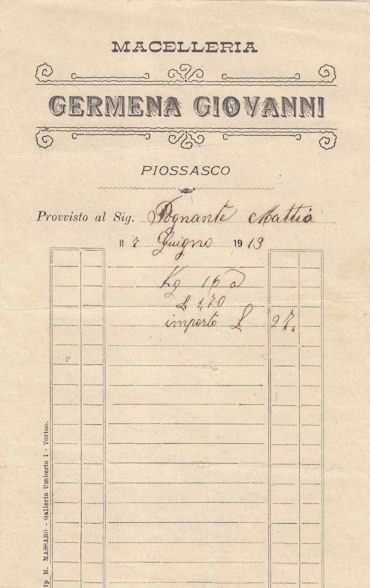 MACELLERIA
GERMENA GIOVANNI
PIOSSASCO
Provvisto al Sig. Pognante Mattia
li 1 Guigno 1913
Kg 16 a
£ 1,70
importo £ 27.
ip M. MASSARO - Galleria Umberto I - Torino.